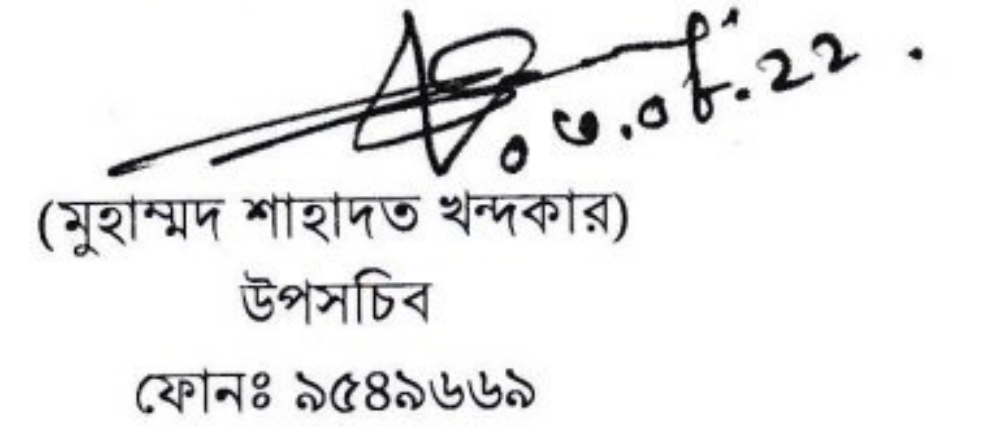 ০৩.০৮.২২.
(মুহাম্মদ শাহাদত খন্দকার)
উপসচিব
ফোনঃ ৯৫৪৯৬৬৯